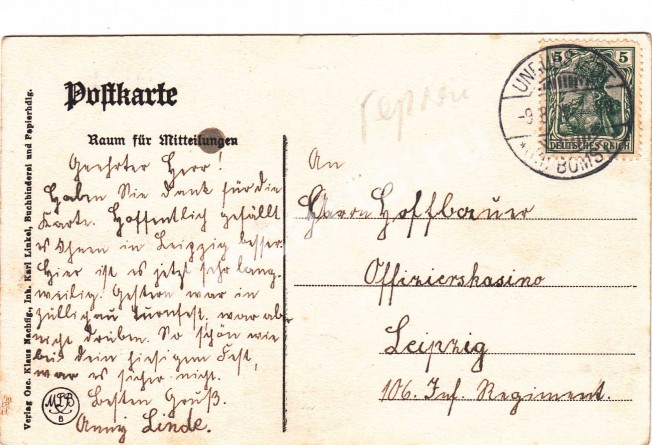 Postkarte
Raum für Mitteilungen
Geehrter Herr!
Haben Sie dank für die
Karte. Hoffentlich gefällt
es Ihnen in Leipzig besser.
Hier ist es jetzt sehr lang-
weilig. Gestern war in
Züllichau Turnfest. war aber
nicht drüben. So schön wie
bei dein hiesigem Fest,
war es sicher nicht.
Besten Gruß.
Anny Linde.
An
Herrn Hoffbauer
Offizierskasino
Leipzig
106. Inf. Regiment.
5 5
DEUTSCHES REICH
UNR
-9.8
* BOMST
Verlag Osc. Klaus Nachflg., Inh. Karl Linkel, Buchbinderei und Papierhdlg.
MBB
B